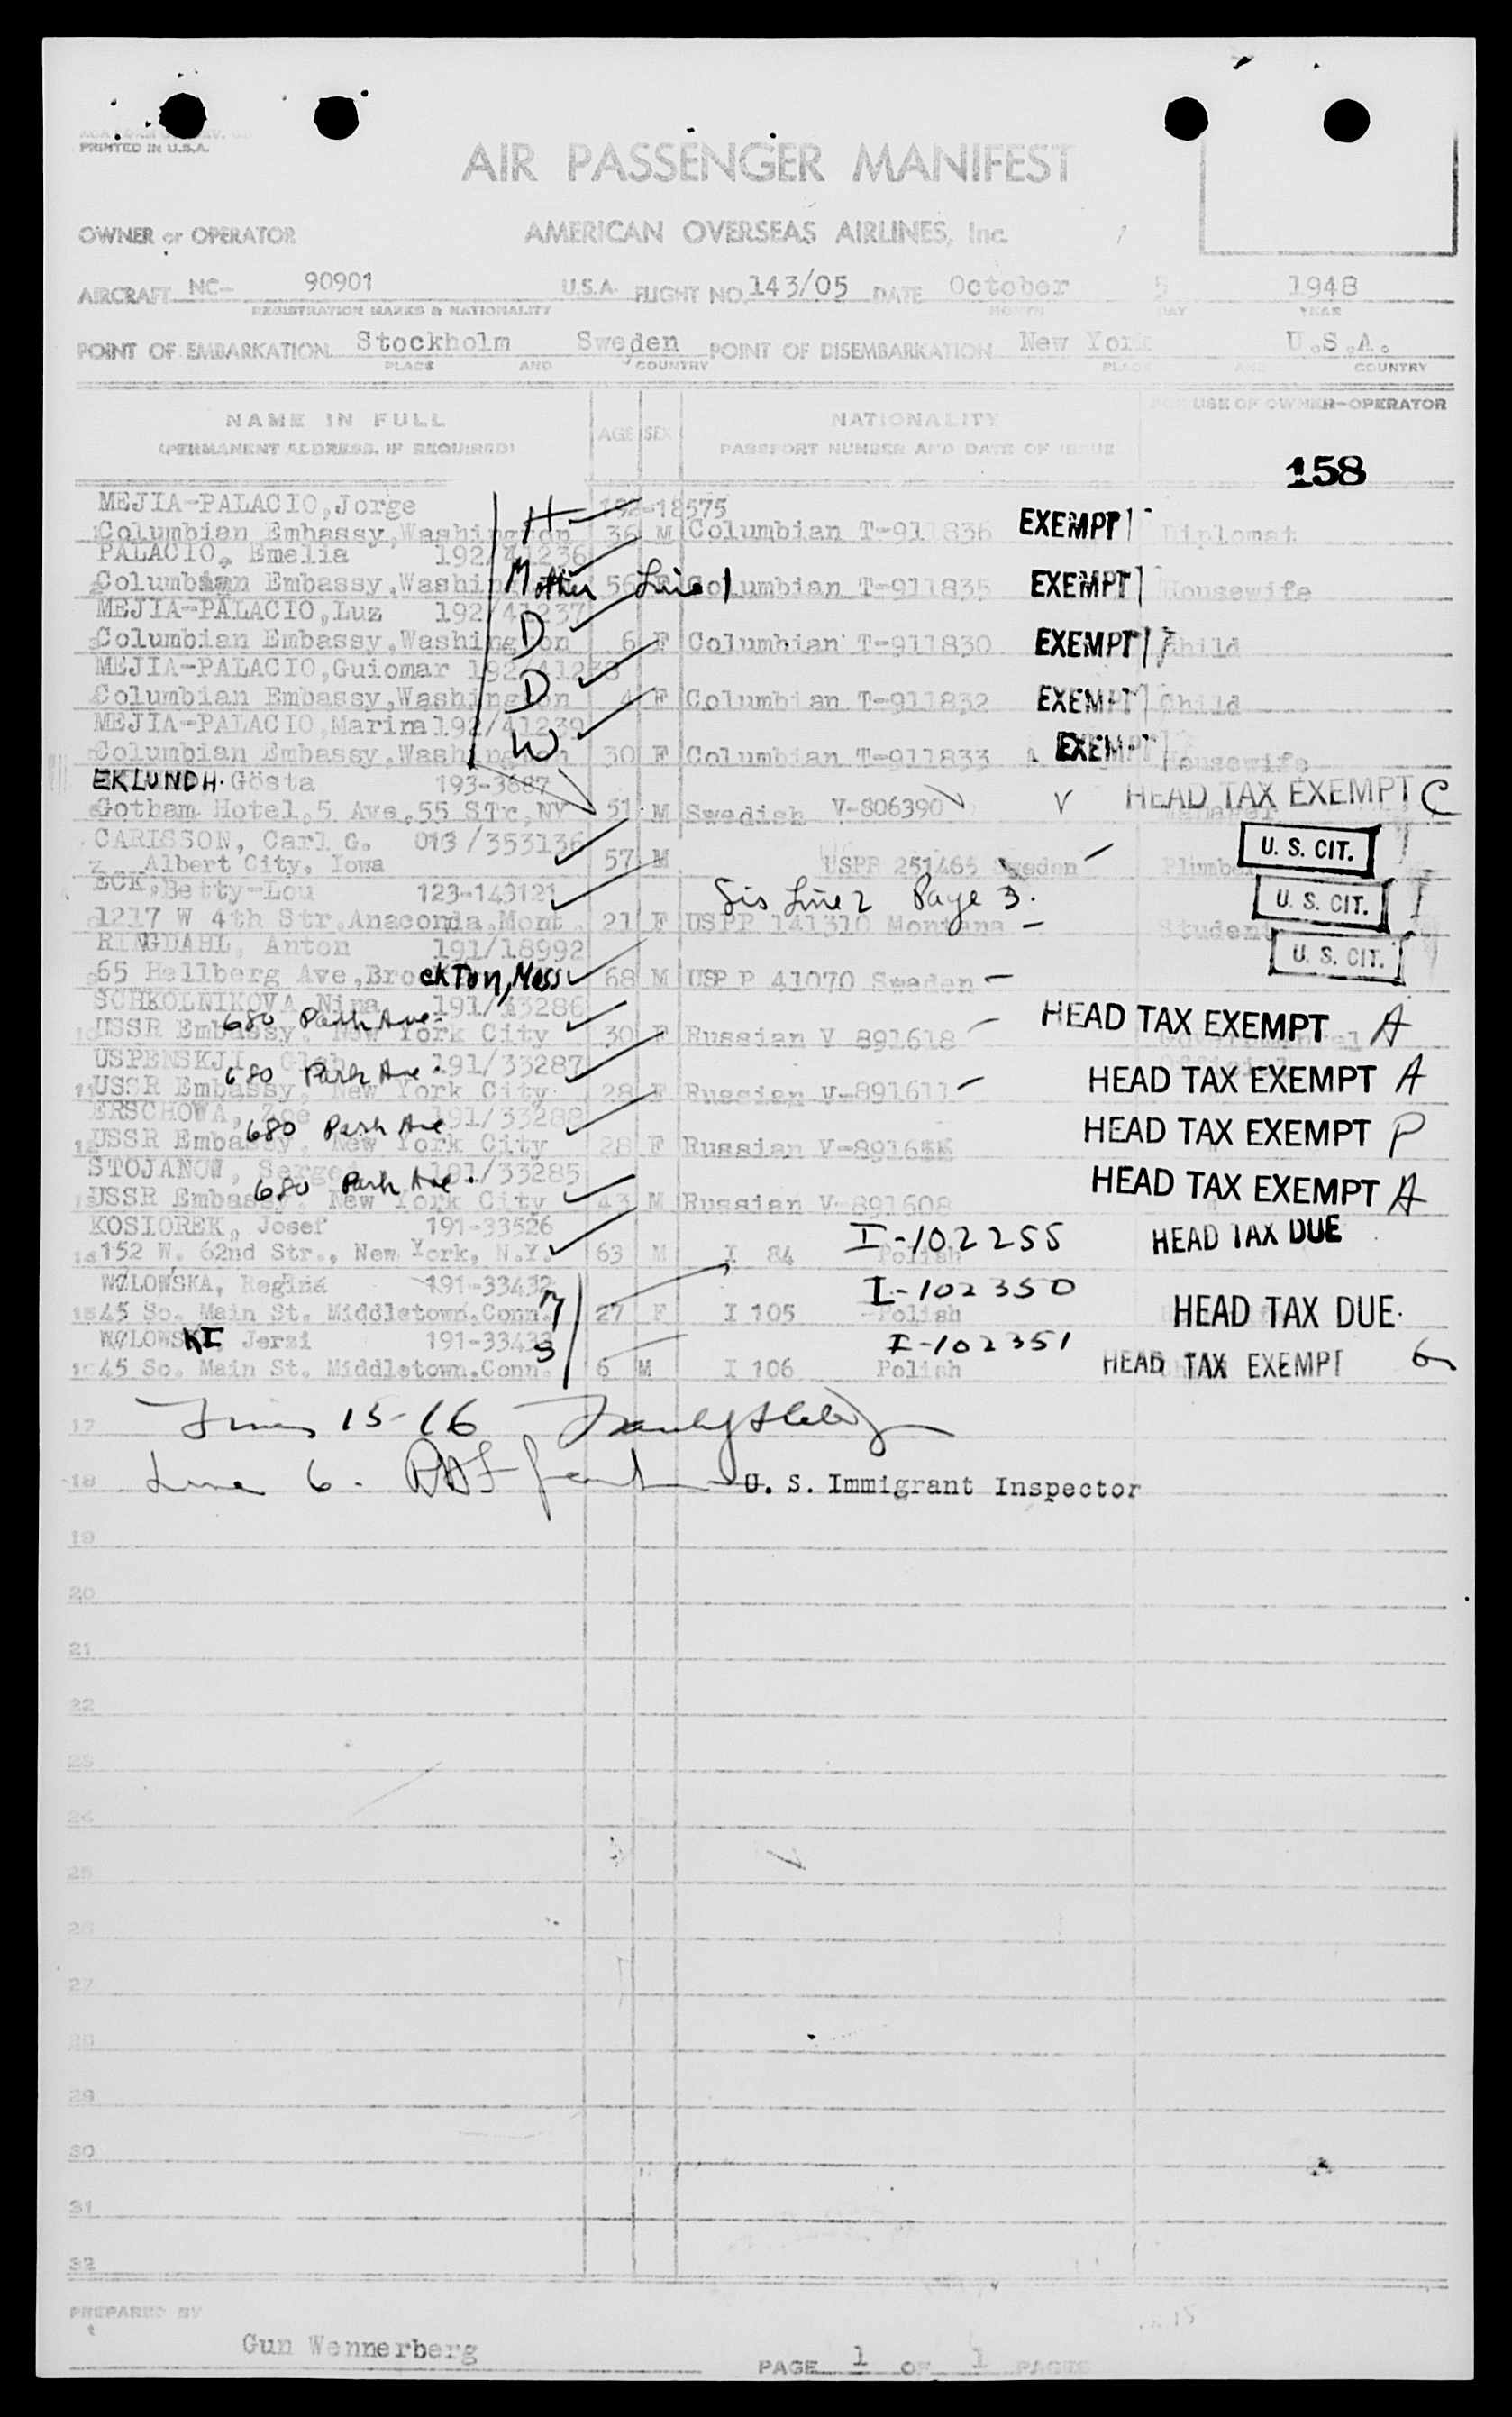 PRINTED IN U.S.A.
AIR PASSENGER MANIFEST
OWNER or OPERATOR AMERICAN OVERSEAS AIRLINES, Inc.
AIRCRAFT NC- 90901 U.S.A. FLIGHT NO. 143/05 DATE October 5 1948
REGISTRATION MARKS & NATIONALITY MONTH DAY YEAR
POINT OF EMBARKATION Stockholm Sweden POINT OF DISEMBARKATION New York U.S.A.
PLACE AND COUNTRY PLACE AND COUNTRY
NAME IN FULL AGE SEX NATIONALITY FOR USE OF OWNER-OPERATOR
(PERMANENT ADDRESS, IF REQUIRED) PASSPORT NUMBER AND DATE OF ISSUE
158
MEJIA-PALACIO,Jorge 192-18575
Columbian Embassy,Washington H 36 M Columbian T-911836 EXEMPT Diplomat
PALACIO, Emelia 192/41236
Columbian Embassy,Washin Mother 56 F Line 1 Columbian T-911835 EXEMPT Housewife
MEJIA-PALACIO,Luz 192/41237
Columbian Embassy,Washington D 6 F Columbian T-911830 EXEMPT Child
MEJIA-PALACIO,Guiomar 192/41238
Columbian Embassy,Washington D 4 F Columbian T-911832 EXEMPT Child
MEJIA-PALACIO,Marina 192/41239
Columbian Embassy,Washington W 30 F Columbian T-911833 EXEMPT Housewife
EKLUNDH. Gösta 193-3687
Gotham Hotel,5 Ave,55 STr,NY 51 M Swedish V-806390 HEAD TAX EXEMPT C Manager
CARLSSON, Carl G. 013/353136
Albert City, Iowa 57 M USPP 251465 Sweden Plumber U. S. CIT.
ECK,Betty-Lou 123-143121 Sis Line 2 Page 3.
1217 W 4th Str.Anaconda,Mont. 21 F USPP 141310 Montana Student U. S. CIT.
RINGDAHL, Anton 191/18992
65 Hellberg Ave,Brockton, Mass 68 M USP P 41070 Sweden U. S. CIT.
SCHKOLNIKOVA Nina 191/33286
680 Park Ave.
USSR Embassy, New York City 30 F Russian V 891618 HEAD TAX EXEMPT A
USPENSKJI, Gleb 191/33287
680 Park Ave.
USSR Embassy, New York City 28 F Russian V-891611 HEAD TAX EXEMPT A
ERSCHOWA, Zoe 191/33288
680 Park Ave
12 USSR Embassy, New York City 28 F Russian V-891655 HEAD TAX EXEMPT P
STOJANOW, Serge 191/33285
680 Park Ave.
USSR Embassy, New York City 43 M Russian V-891608 HEAD TAX EXEMPT A
KOSIOREK, Josef 191-33526 I-102255
14 152 W. 62nd Str., New York, N.Y. 63 M I 84 Polish HEAD TAX DUE
WOLOWSKA, Regina 191-33432 I-102350
15 45 So. Main St. Middletown.Conn. M 27 F I 105 Polish HEAD TAX DUE.
WOLOWSKI Jerzi 191-33433 I-102351
16 45 So. Main St. Middletown.Conn. S 6 M I 106 Polish HEAD TAX EXEMPT G
17 Lines 15-16
18 Line 6. U. S. Immigrant Inspector
19
20
21
22
23
24
25
26
27
28
29
30
31
32
PREPARED BY
Gun Wennerberg
PAGE 1 OF 1 PAGES